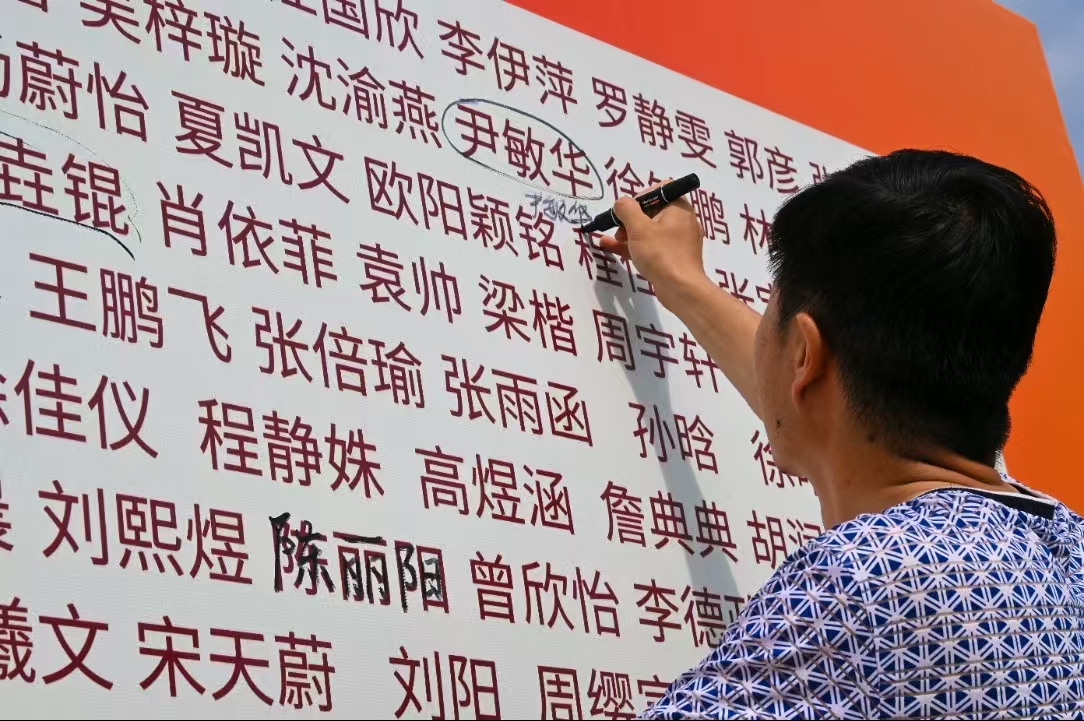 吴梓璇 国欣 李伊萍 罗静雯 郭彦
蔚怡 沈渝燕 尹敏华 徐 鹏 林
垚锟 夏凯文 欧阳颖铭 程
尹敏华
肖依菲 袁帅 梁楷 周宇轩
王鹏飞 张倍瑜 张雨函 孙晗
佳仪 程静姝 高煜涵 詹典典 胡
刘熙煜 陈丽阳 曾欣怡 李德
曦文 宋天蔚 刘阳 周缨